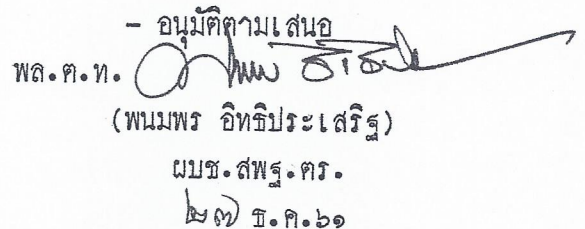 - อนุมัติตามเสนอ
พล.ต.ท.
(พนมพร อิทธิประเสริฐ)
ผบช.สพฐ.ตร.
๒๗ ธ.ค.๖๑